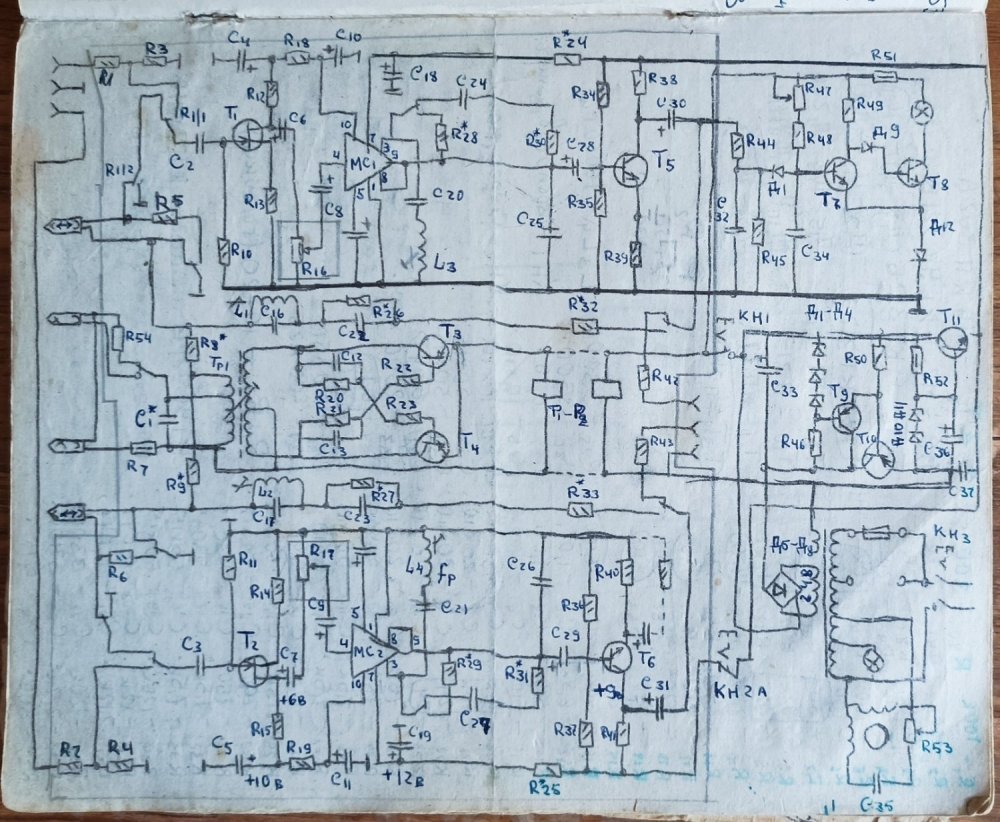 R1
R3
C4
R18
C10
R*24
R51
R1/1
R12
T1
C6
C18
C24
R34
R38
C30
R47
R49
Д9
C2
10
7
3
9
R*28
R*30
C28
R44
R48
R1/2
4
MC1
8
5
1
T5
Д1
T7
T8
R5
R13
C8
C20
C25
R35
C32
R45
C34
Д12
R10
R16
L3
R39
L1
C16
R*26
C22
R*32
KH1
Д1-Д4
T11
R54
R8*
Tp1
C12
R22
T3
R42
C33
R50
R52
C1*
R20
R21
R23
P1-P2
T9
C13
T4
R43
R46
T10
C36
R7
R9*
C37
L2
C17
R*27
C23
R*33
Д5-Д8
KH3
R6
R11
R17
L4
fp
C26
R40
R14
C9
C21
R36
C3
T2
C7
4
5
1
8
9
MC2
3
10
7
R*29
R*31
C29
T6
KH2A
+6В
C27
C31
R15
C19
R37
R41
R53
R2
R4
C5
R19
+10В
C11
+12В
R*25
C35